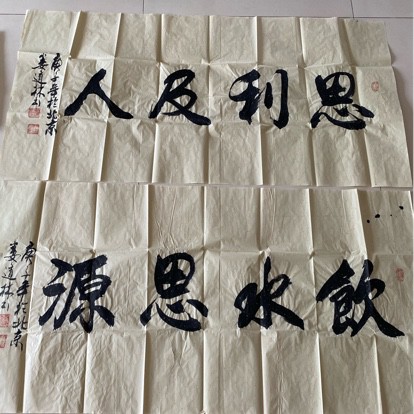 思利及人
庚子年於北京
娄道林书
飲水思源
庚子年於北京
娄道林书